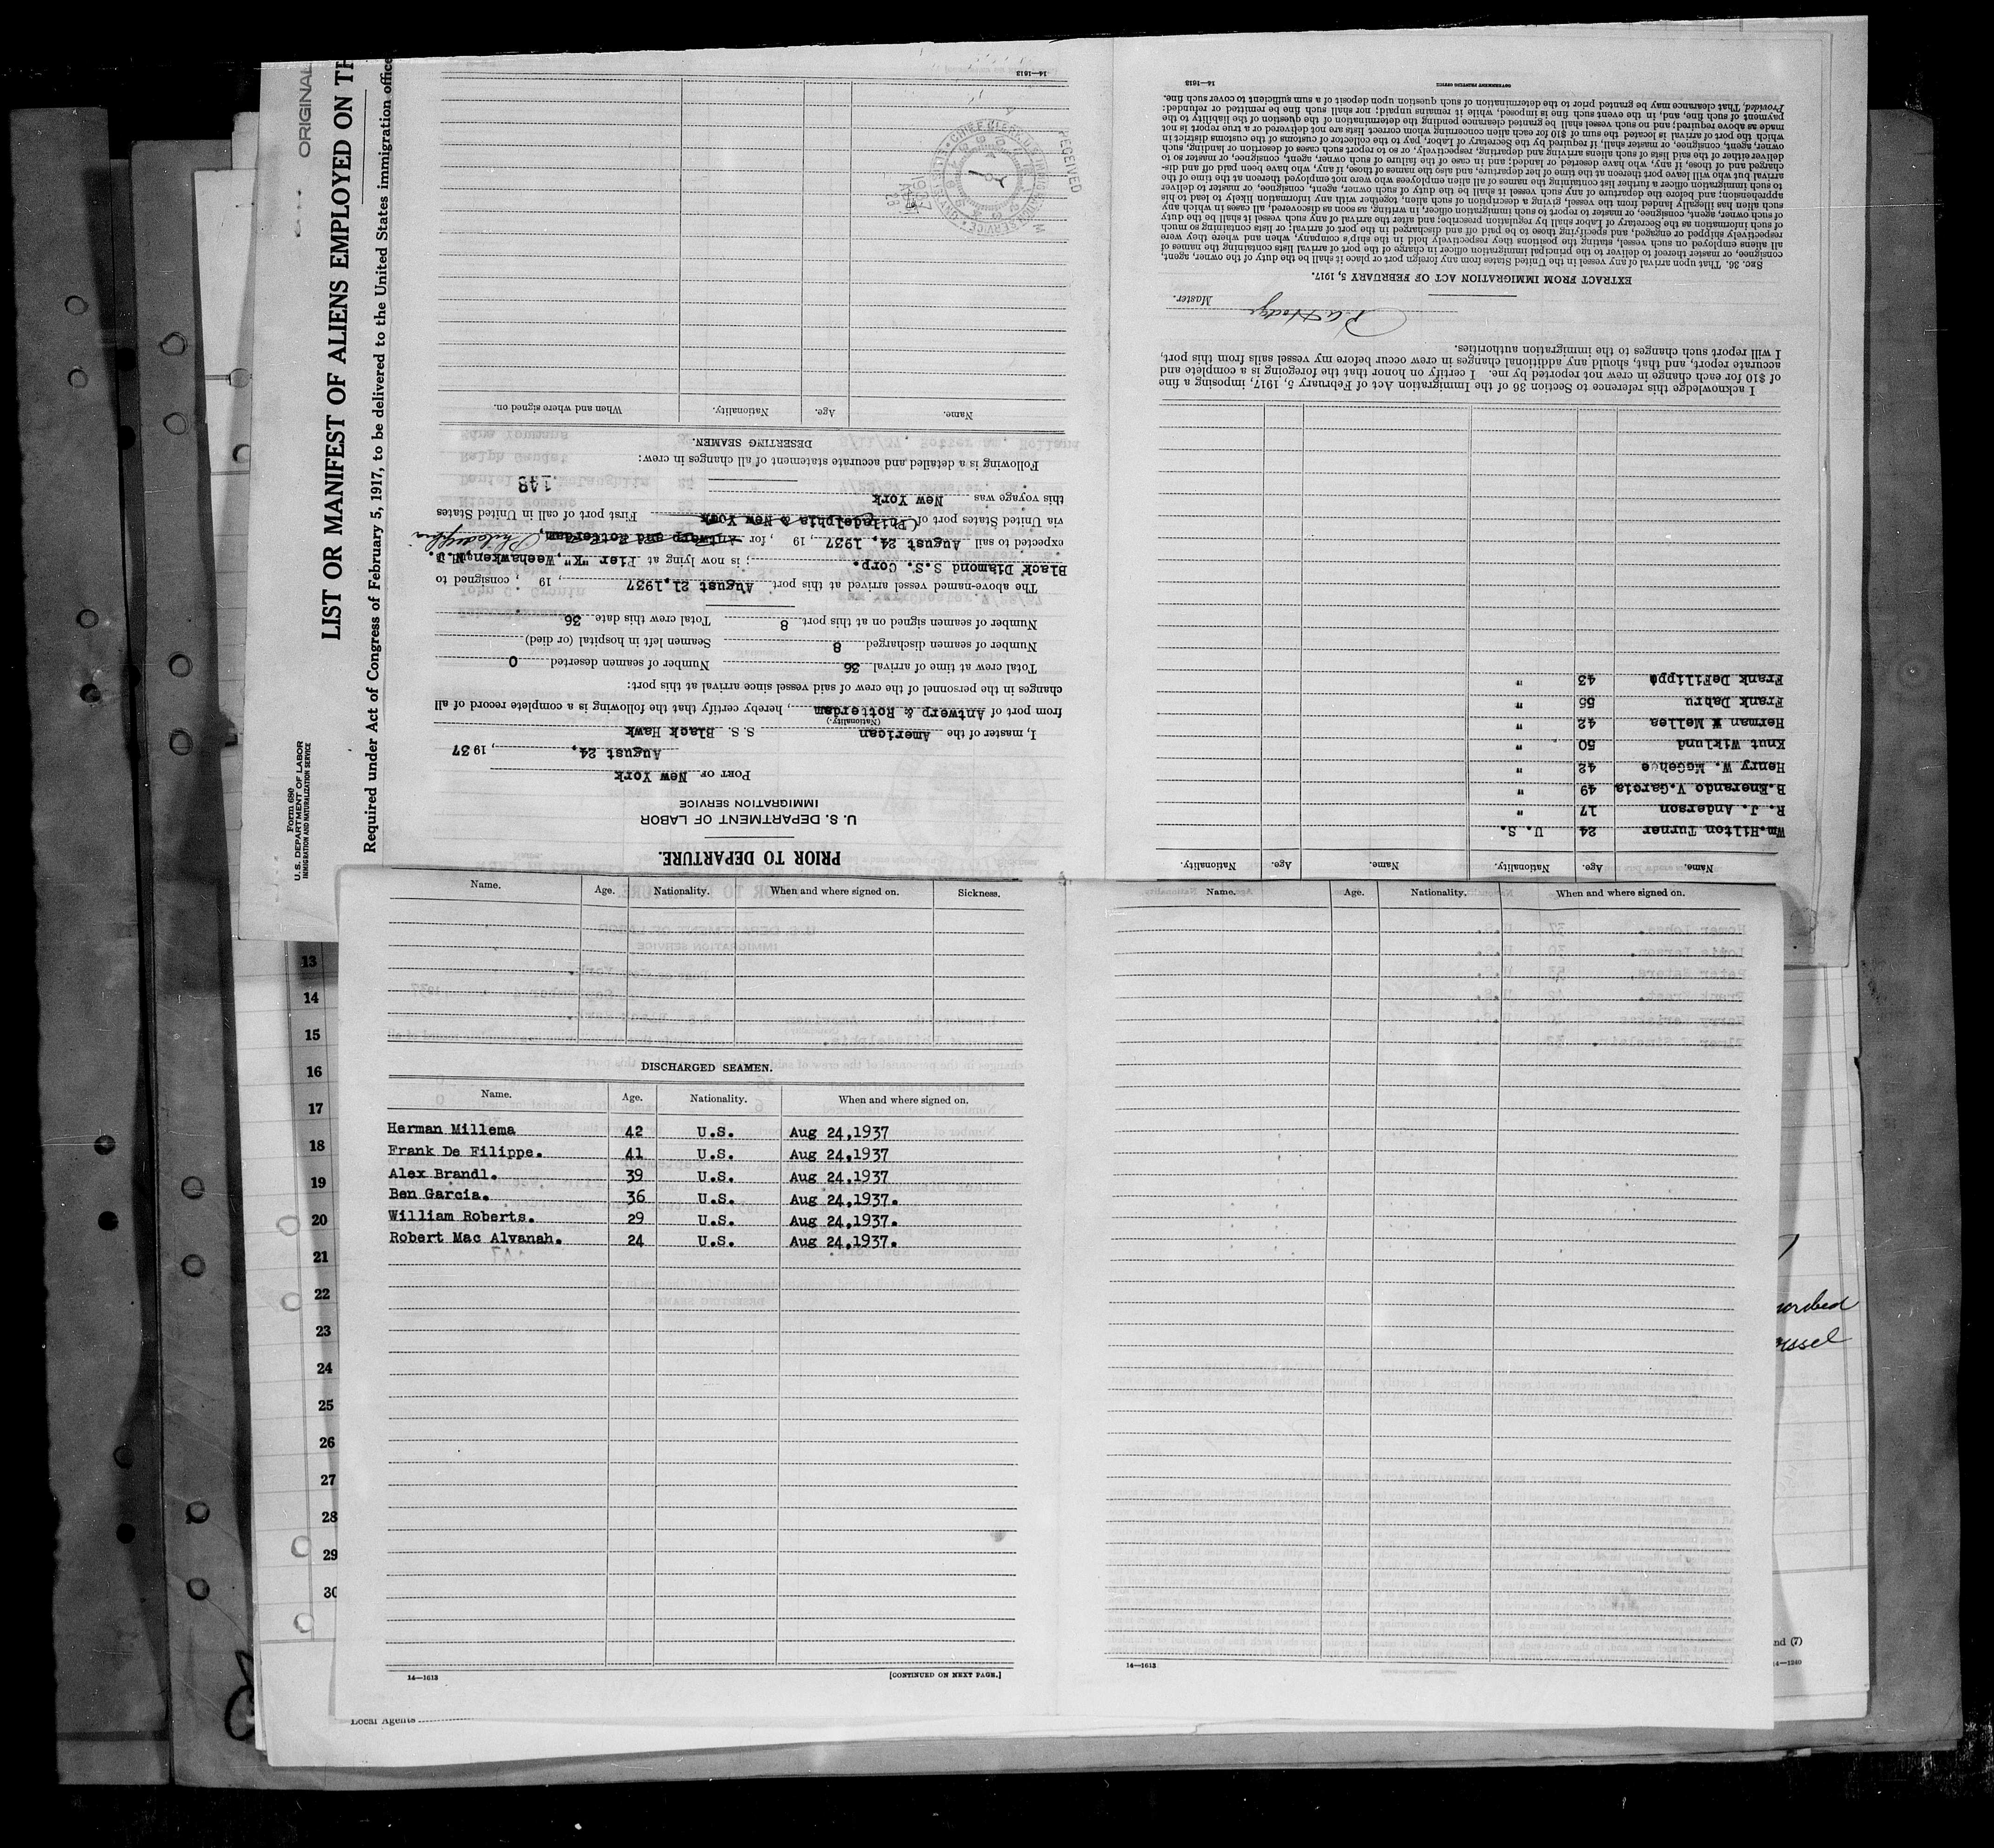 ORIGINAL
LIST OR MANIFEST OF ALIENS EMPLOYED ON TH
Required under Act of Congress of February 5, 1917, to be delivered to the United States immigration office
Form 680
U. S. DEPARTMENT OF LABOR
IMMIGRATION AND NATURALIZATION SERVICE
PRIOR TO DEPARTURE.
U. S. DEPARTMENT OF LABOR
IMMIGRATION SERVICE
PORT OF New York
August 24, , 1937
I, master of the American S. S. Black Hawk
(Nationality.)
from port of Antwerp & Rotterdam, hereby certify that the following is a complete record of all
changes in the personnel of the crew of said vessel since arrival at this port:
Total crew at time of arrival 36 Number of seamen deserted 0
Number of seamen discharged 8 Seamen left in hospital (or died)
Number of seamen signed on at this port 8 Total crew this date 36
The above-named vessel arrived at this port August 21,1937, 19 , consigned to
Black Diamond S.S. Corp. ; is now lying at Pier "K", Weehawken, N.J.
expected to sail August 24, 1937, 19 , for Antwerp and Rotterdam, Philadelphia
via United States port of (Philadelphia & New York First port of call in United States
this voyage was New York
148
Following is a detailed and accurate statement of all changes in crew:
DESERTING SEAMEN.
Name. Age. Nationality. When and where signed on.
RECEIVED
14—1613
Name. Age. Nationality. Name. Age. Nationality.
Wm.Hilton Turner 24 U. S.
R. J. Anderson 17 "
B.Enerando V.Garcia 49 "
Henry W. McGehee 42 "
Knut Wiklund 50 "
Herman W Mellea 42 "
Frank Dabru 55 "
Frank DeFilippo 43 "
I acknowledge this reference to Section 36 of the Immigration Act of February 5, 1917, imposing a fine
of $10 for each change in crew not reported by me. I certify on honor that the foregoing is a complete and
accurate report, and that, should any additional changes in crew occur before my vessel sails from this port,
I will report such changes to the immigration authorities.
Master.
EXTRACT FROM IMMIGRATION ACT OF FEBRUARY 5, 1917.
SEC. 36. That upon arrival of any vessel in the United States from any foreign port or place it shall be the duty of the owner, agent,
consignee, or master thereof to deliver to the principal immigration officer in charge of the port of arrival lists containing the names of
all aliens employed on such vessel, stating the positions they respectively hold in the ship's company, when and where they were
respectively shipped or engaged, and specifying those to be paid off and discharged in the port of arrival; or lists containing so much
of such information as the Secretary of Labor shall by regulation prescribe; and after the arrival of any such vessel it shall be the duty
of such owner, agent, consignee, or master to report to such immigration officer, in writing, as soon as discovered, all cases in which any
such alien has illegally landed from the vessel, giving a description of such alien, together with any information likely to lead to his
apprehension; and before the departure of any such vessel it shall be the duty of such owner, agent, consignee, or master to deliver
to such immigration officer a further list containing the names of all alien employees who were not employed thereon at the time of the
arrival but who will leave port thereon at the time of her departure, and also the names of those, if any, who have been paid off and dis-
charged and of those, if any, who have deserted or landed; and in case of the failure of such owner, agent, consignee, or master so to
deliver either of the said lists of such aliens arriving and departing, respectively, or so to report such cases of desertion or landing, such
owner, agent, consignee, or master shall, if required by the Secretary of Labor, pay to the collector of customs of the customs district in
which the port of arrival is located the sum of $10 for each alien concerning whom correct lists are not delivered or a true report is not
made as above required; and no such vessel shall be granted clearance pending the determination of the question of the liability to the
payment of such fine, and, in the event such fine is imposed, while it remains unpaid; nor shall such fine be remitted or refunded:
Provided, That clearance may be granted prior to the determination of such question upon deposit of a sum sufficient to cover such fine.
GOVERNMENT PRINTING OFFICE 14—1613
Name. Age. Nationality. When and where signed on. Sickness.
DISCHARGED SEAMEN.
Name. Age. Nationality. When and where signed on.
Herman Millema 42 U.S. Aug 24,1937
Frank De Filippe. 41 U.S. Aug 24,1937
Alex Brandl. 39 U.S. Aug 24,1937
Ben Garcia. 36 U.S. Aug 24,1937.
William Roberts. 29 U.S. Aug 24,1937.
Robert Mac Alvanah. 24 U.S. Aug 24,1937.
14—1613 [CONTINUED ON NEXT PAGE.]
Name. Age. Nationality. When and where signed on.
14—1613
13
14
15
16
17
18
19
20
21
22
23
24
25
26
27
28
29
30
nd (7)
14—1240
Local Agents